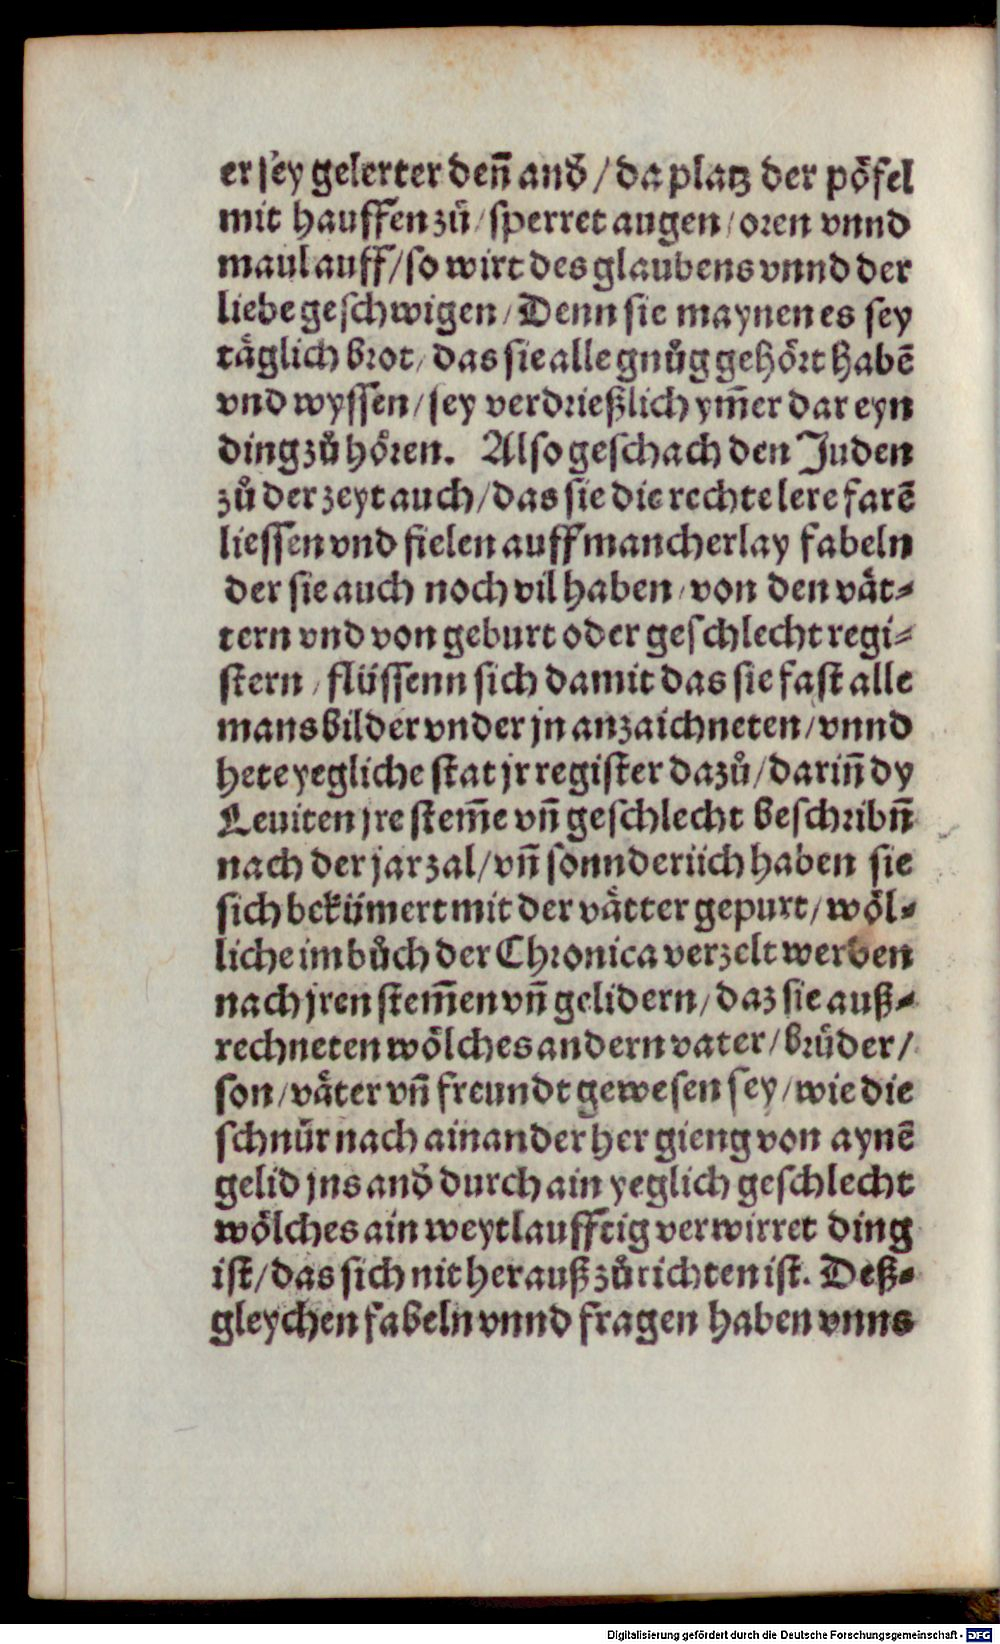 er sey gelerter deñ andʼ / da platz der pöfel
mit hauffen zů / sperret augen / oren vnnd
maul auff / so wirt des glaubens vnnd der
liebe geschwigen / Denn sie maynen es sey
täglich brot / das sie alle gnůg gehört habē
vnd wyssen / sey verdrießlich ym̃er dar eyn
ding zů hören. Also geschach den Juden
zů der zeyt auch / das sie die rechte lere farē
liessen vnd fielen auff mancherlay fabeln
der sie auch noch vil haben / von den vät⸗
tern vnd von geburt oder geschlecht regi⸗
stern / flüssenn sich damit das sie fast alle
mansbilder vnder jn anzaichneten / vnnd
hete yegliche stat jr register dazů / dariñ dy
Leuiten jre stem̃e vñ geschlecht beschribñ
nach der jarzal / vñ sonnderiich haben sie
sich bekümert mit der vätter gepurt / wöl⸗
liche im bůch der Chronica verzelt werden
nach jren stem̃en vñ gelidern / daz sie auß⸗
rechneten wölches andern vater / brůder /
son / väter vñ freundt gewesen sey / wie die
schnůr nach ainander her gieng von aynē
gelid jns andʼ durch ain yeglich geschlecht
wölches ain weytleufftig verwirret ding
ist / das sich nit herauß zů richten ist. Deß⸗
gleychen fabeln vnnd fragen haben vnns
Digitalisierung gefördert durch die Deutsche Forschungsgemeinschaft - DFG